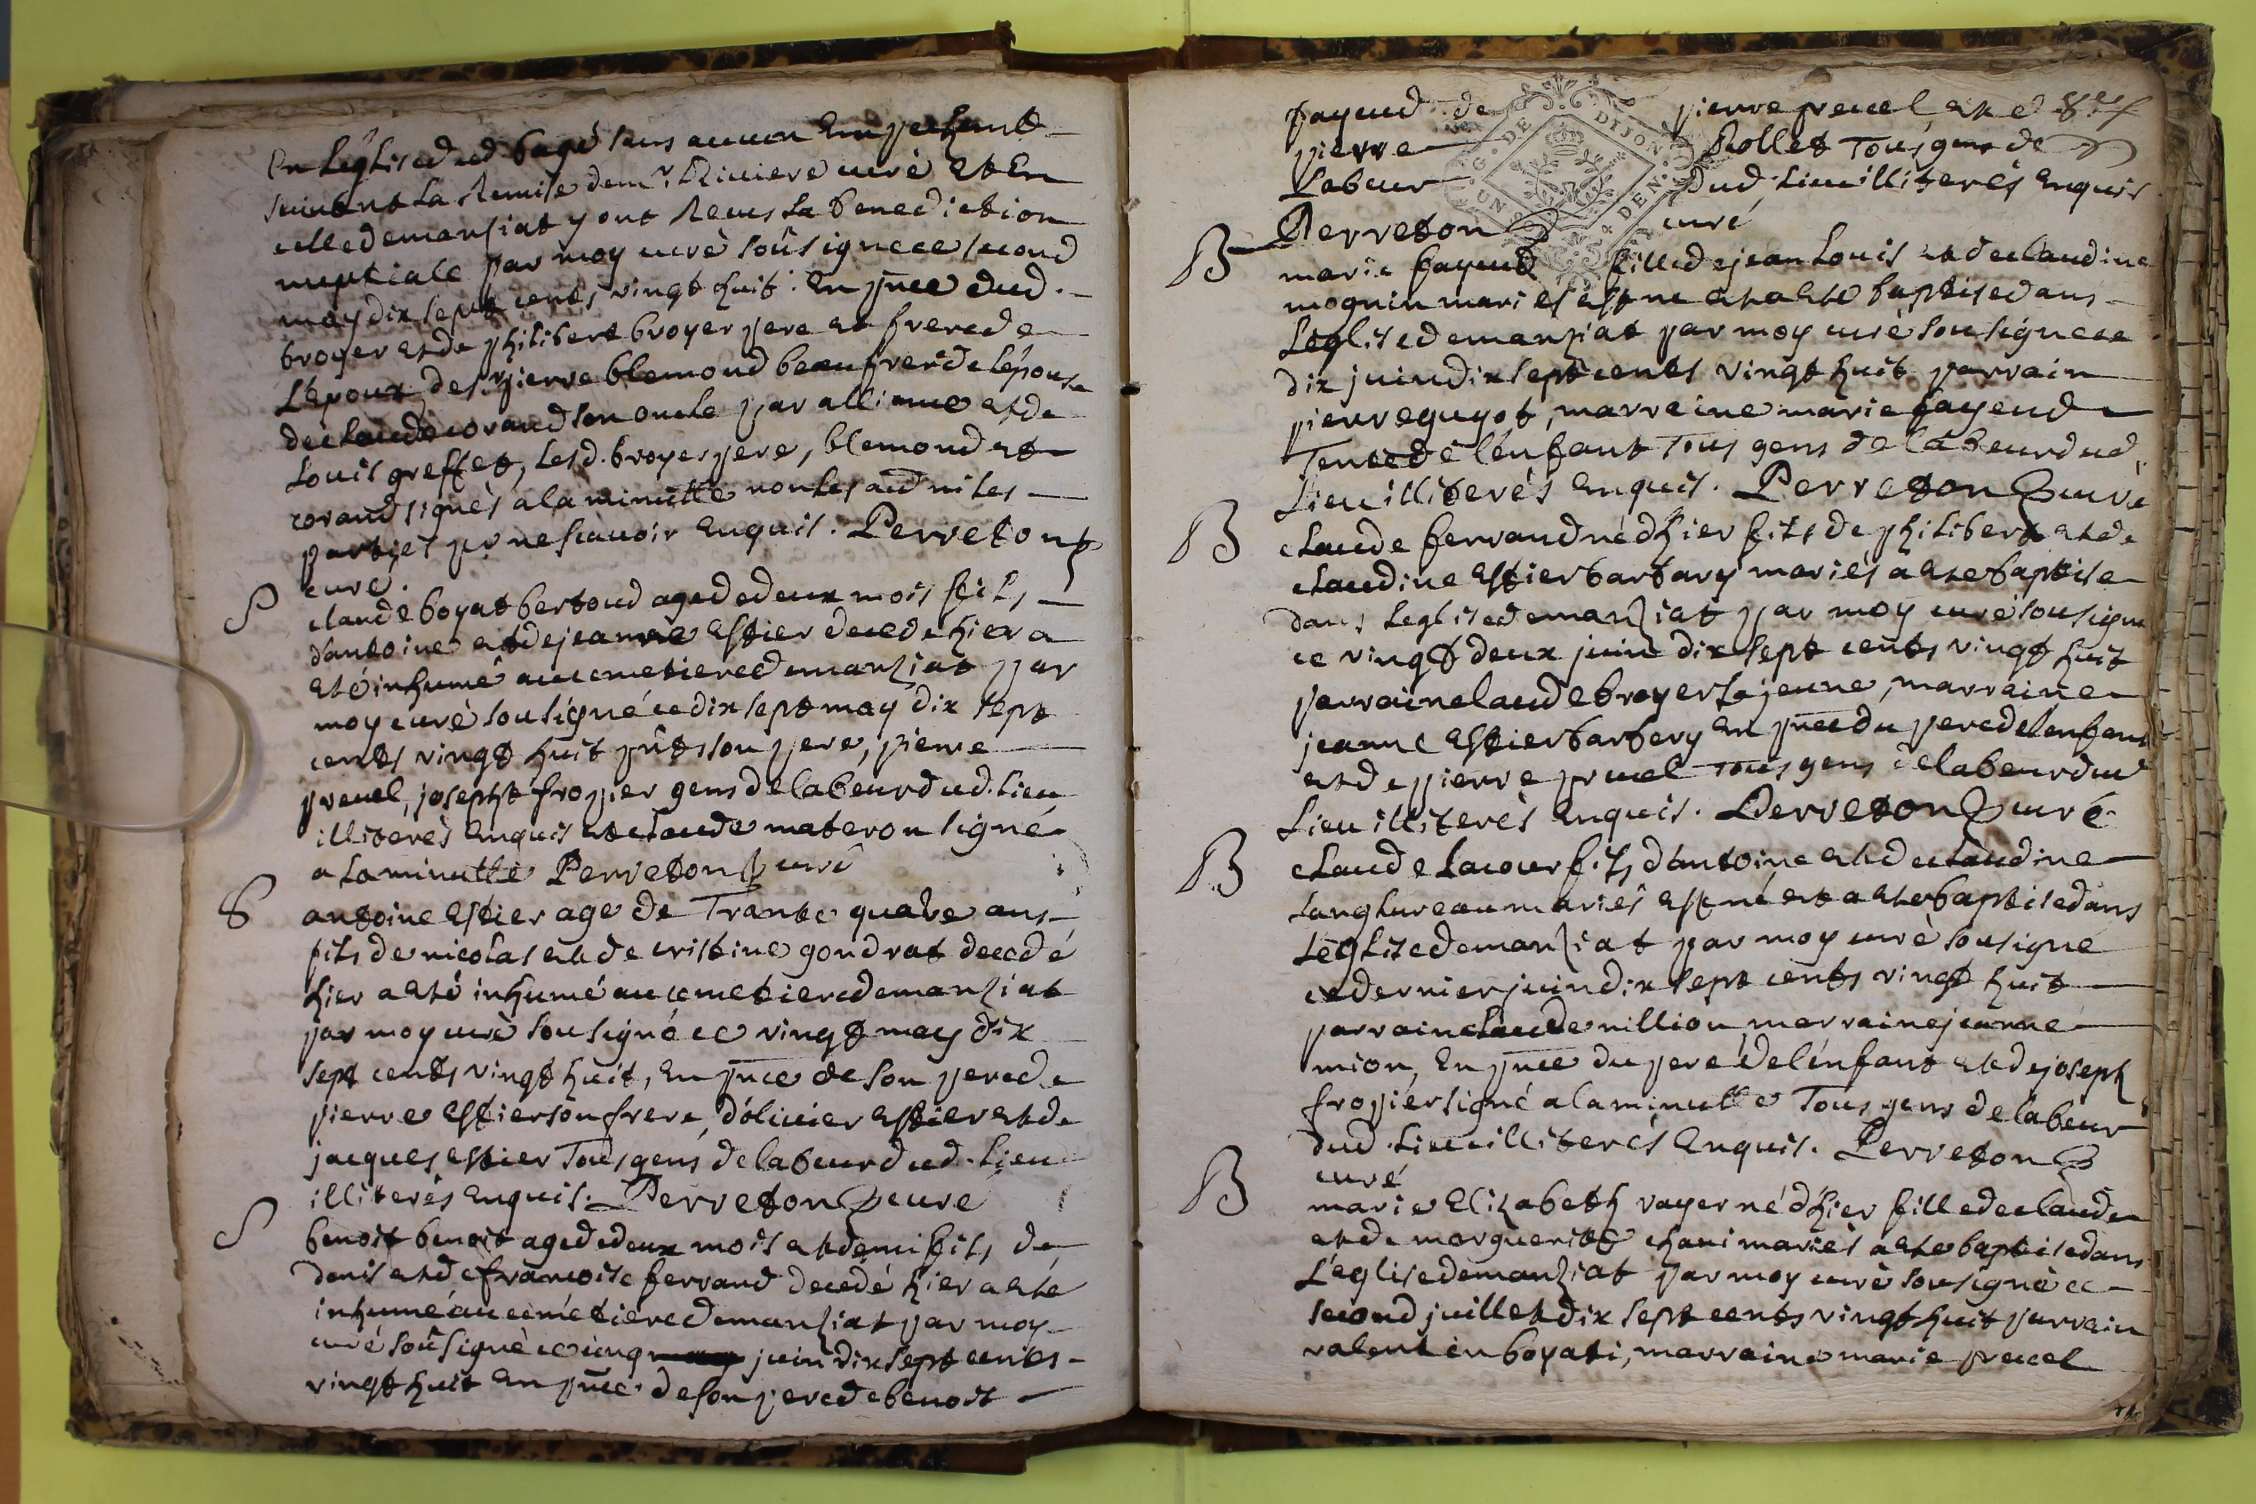 En Léglise dud bagé sans aucun Empechemt
suivent La Remise de mr. Riviere curé et En
celle de manziat y ont Receus La benediction
nuptiale par moy curé soûsigne ce second
may dix sept cents vingt huit. En pnce dud.
broyer et de philibert broyer pere et frere de
L'epoux, de sr pierre blemoud beaufrere de L'épouse
de claude corand son oncle par alliance et de
Louis greffet, Lesd. broyer pere, blemoud et
corand signés a la minutte non les aud ni les
parties pr ne scavoir Enquis. Perreton
curé.
S claude boyat bertoud agé de deux mois fils
d'antoine et de jeanne Estier decede hier a
eté inhumé au cemetiere de manziat par
moy curé sousigné ce dix sept may dix sept
cents vingt huit pnts son pere, pierre
preuel, joseph fropier gens de labeur dud. Lieu
illiterés Enquis et claude materon signé
a La minutte Perreton curé
S antoine Estier age de Trante quatre ans
fils de nicolas et de cristine gondrat decedé
hier a eté inhumé au cemetiere de manziat
par moy curé sousigné ce vingt may dix
sept cents vingt huit, en pnce de son pere de
pierre Estier son frere, d'olivier Estier et de
jacques estier Tous gens de labeur dud. Lieu
illiterés Enquis. Perreton curé
S benoit benoit agé de deux mois et demi fils de
denis et de francoise ferrand decedé hier a eté
inhumé au cemetiere de manziat par moy
curé soûsigné ce cinq juin dix sept cents
vingt huit en pnce de son pere de benoit
payeud de pierre preuel et d
pierre Rollet Tous gens de
Labeur dud. Lieu illiterés Enquis
Perreton curé
B marie fayeud fille de jean Louis et de claudine
moguin mariés est ne et a eté baptise dans
Léglise de manziat par moy curé sousigne ce
dix juin dix sept cents vingt huit parrain
pierre guyot, marreine marie fayeud
Tente de l'enfant Tous gens de labeur dud.
Lieu illiterés Enquis. Perreton curé
B claude ferrand né d'hier fils de philibert et de
claudine Estier barbary mariés a eté baptise
dans Leglise de manziat par moy curé sousigne
ce vingt deux juin dix sept cents vingt huit
parrain claude broyer Le jeune, marraine
jeanne Estier barbery en pnce du pere de lenfant
et de pierre preuel Tous gens de labeur dud
Lieu illiterés Enquis. Perreton curé
B claude Lacour fils d'antoine et de claudine
Langlureau mariés est né et a eté baptise dans
Léglise de manziat par moy curé sousigné
ce dernier juin dix sept cents vingt huit
parrain claude nillion marraine jeanne
mion, En pnce du pere de l'enfant et de joseph
fropier signé a la minutte Tous gens de labeur
dud. Lieu illiterés Enquis. Perreton
curé
B marie Elizabeth rayer né d'hier fille de claude
et de marguerite chani mariés a eté baptise dans
L'eglise de manziat par moy curé sousigné ce
second juillet dix sept cents vingt huit parrain
valentin boyati, marraine marie preuel
G. DE DIJON
UN DEN.